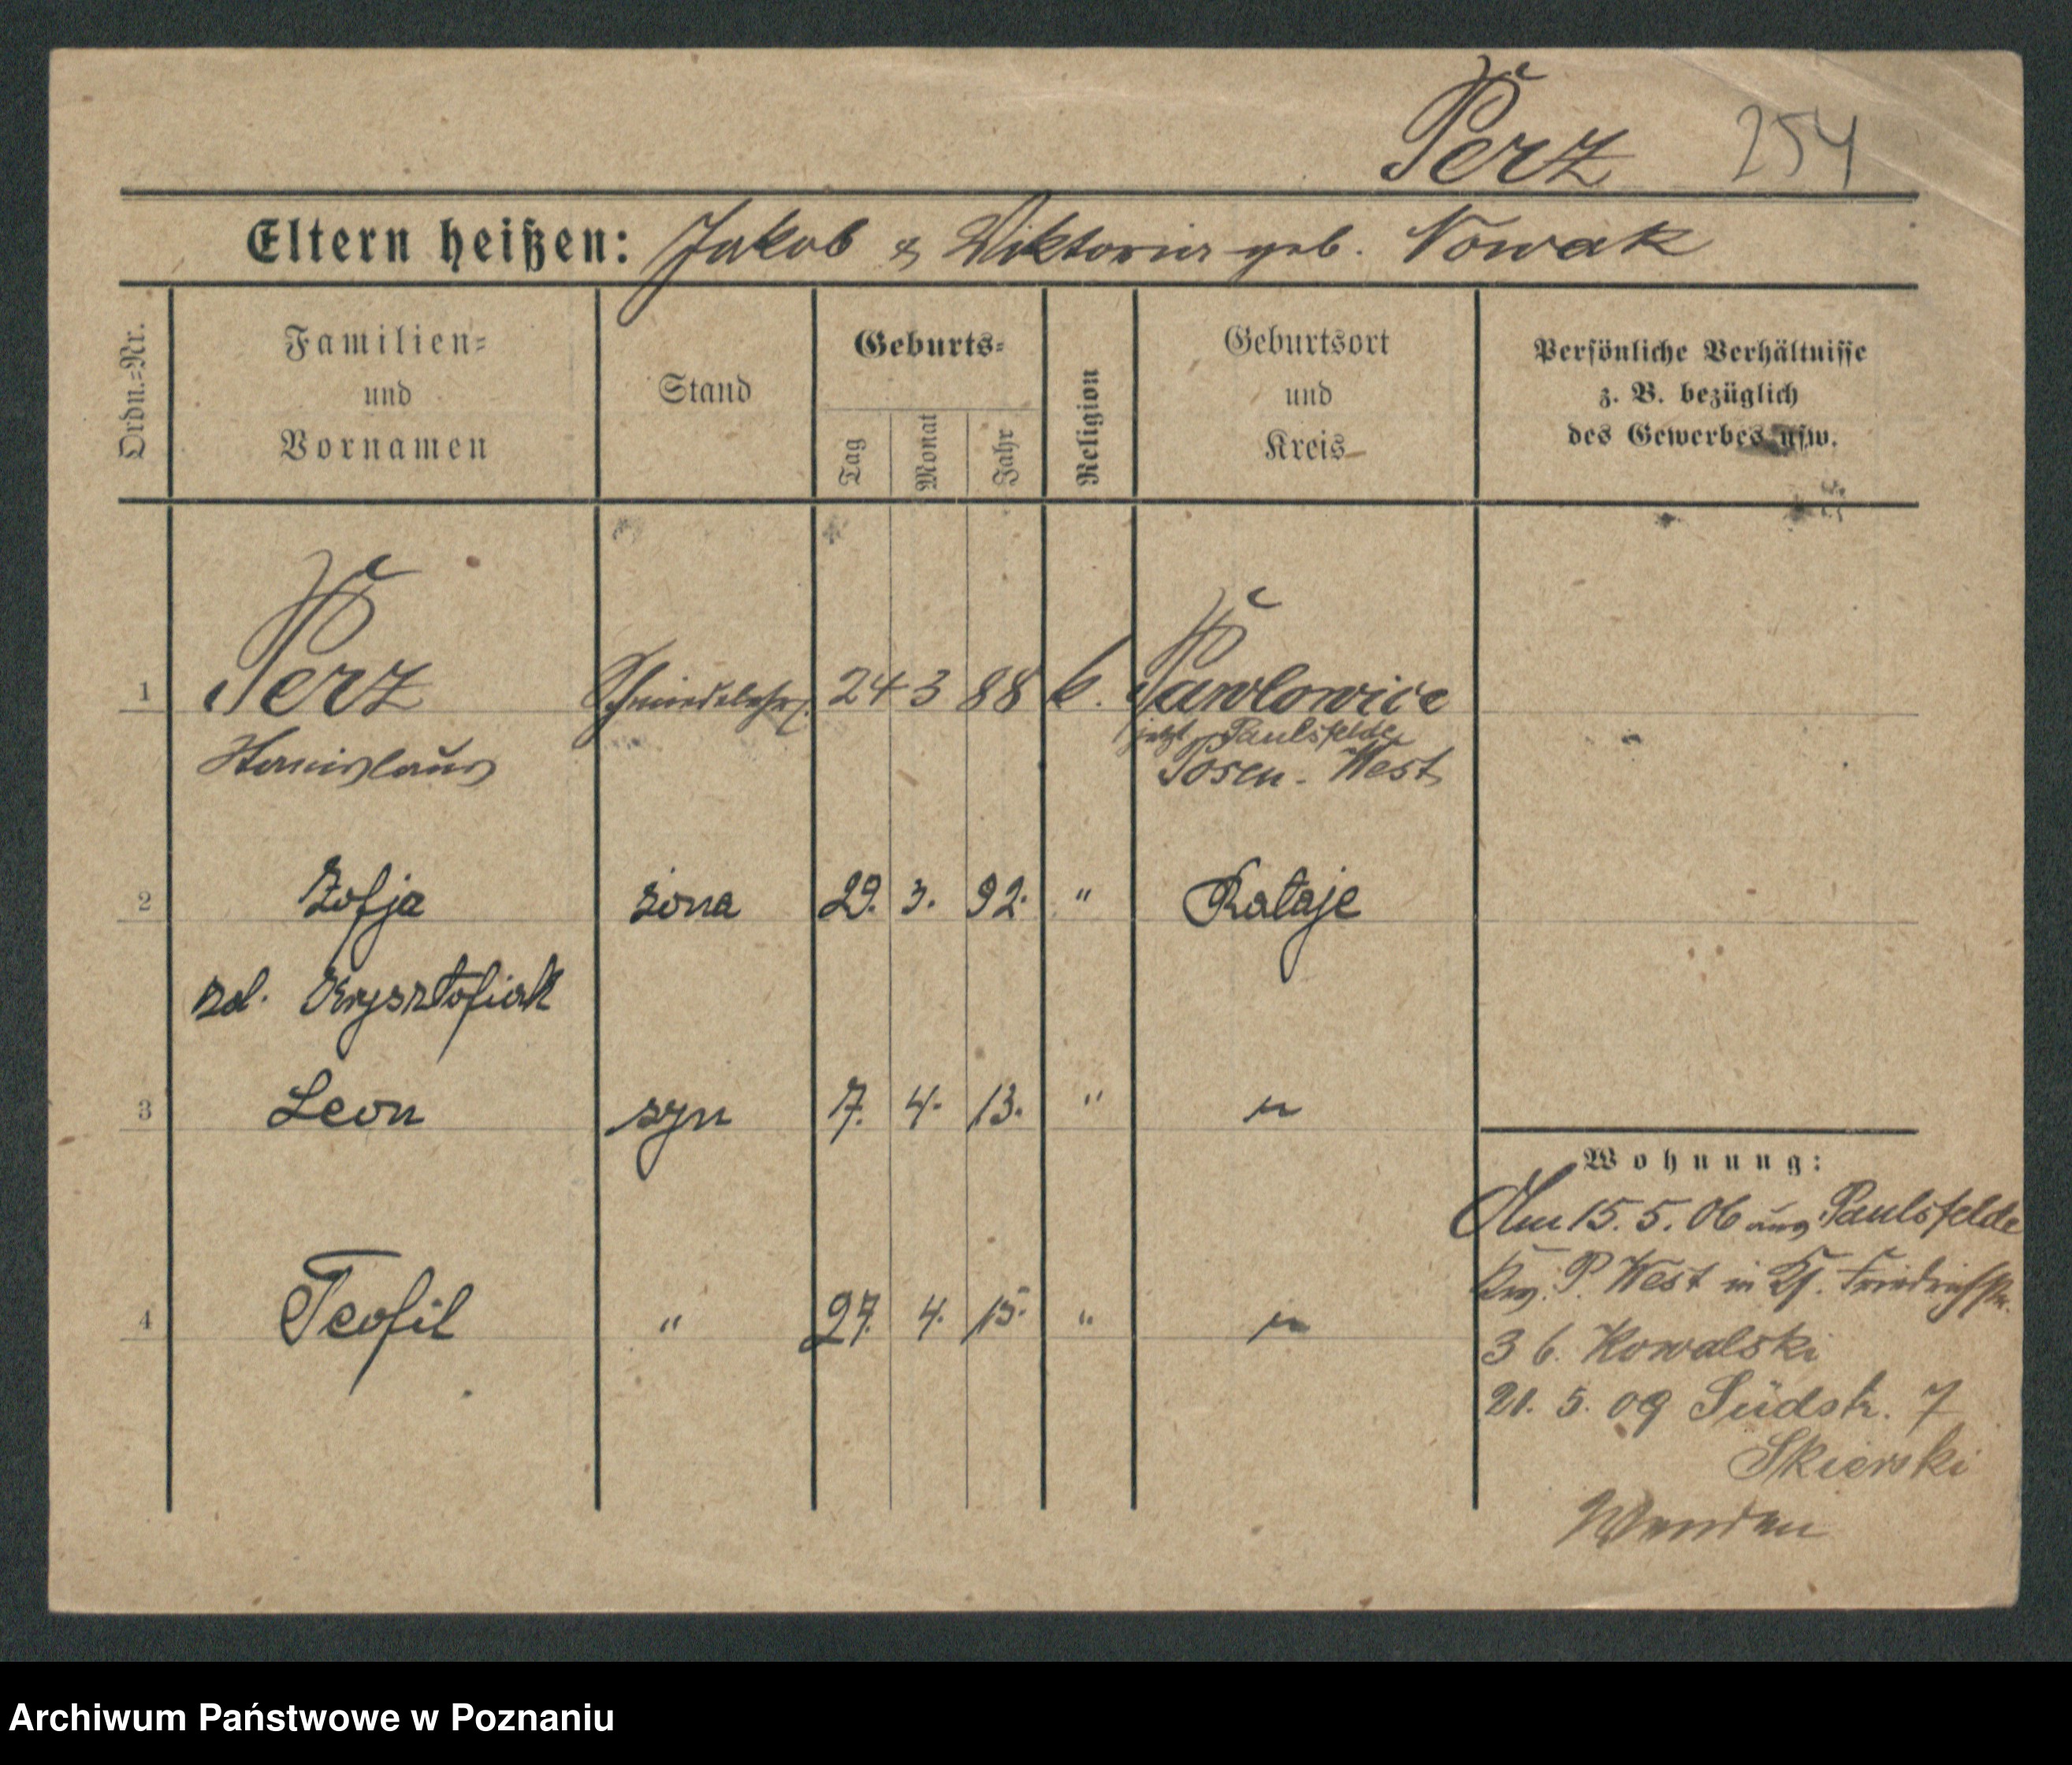 Perz 254
Eltern heißen: Jakob & Viktoria geb. Nowak
Ordn.=Nr.
Familien=
und
Vornamen
Stand
Geburts=
Tag
Monat
Jahr
Religion
Geburtsort
und
Kreis
Persönliche Verhältnisse
z. B. bezüglich
des Gewerbes usw.
1 Perz Schmiedelehrl. 24 3 88 k. Pawlowice
jetzt Paulsfelde
Stanislaus Posen-West
2 Zofja żona 29. 3. 92. " Rataje
zd. Krysztofiak
3 Leon syn 7. 4. 13. " "
4 Teofil " 27. 4. 15. " "
Wohnung:
Am 15. 5. 06 aus Paulsfelde
P. West in Friedrichstr.
36. Kowalski
21. 5. 09 Südstr. 7
Skierski
Archiwum Państwowe w Poznaniu